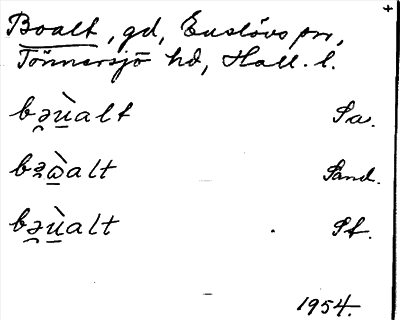 Boalt, gd, Enslövs sn,
Tönnersjö hd, Hall. l.
bə̯ṳ̀alt Sa.
alt Sand.
bə̯ṳ̀alt St.
1954.
+